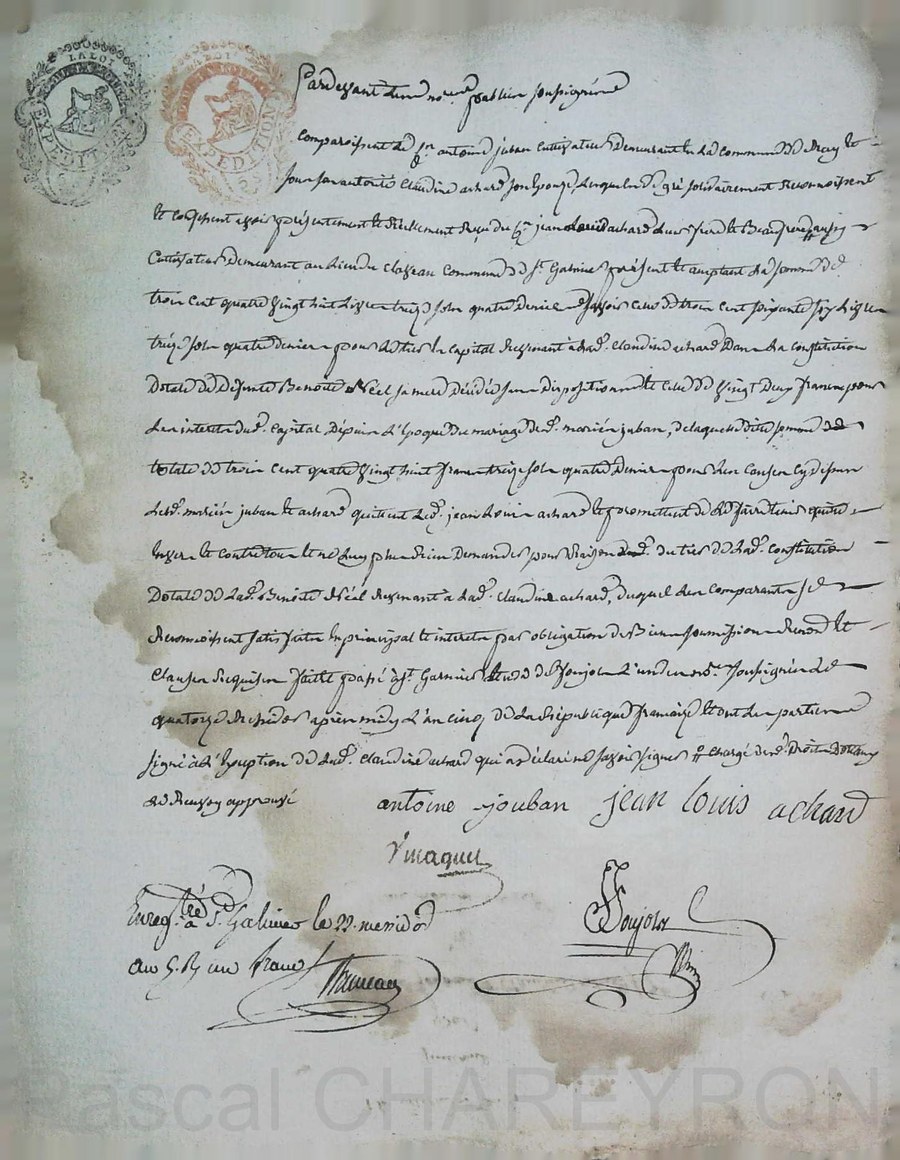 LA LOI
EXPEDITION
LA LOI
EXPEDITION
Pardevant le no.re public soussigné
Comparoissent antoine juban Cultivateur Demeurant en la commune de et
sous son autorité Claudine achard son Epouse, Lesquels de gré solidairement Reconnoissent
et confessent avoir présentement et réellement Reçu du Cn jean Louis achard Leur frere et Beaufrere aussy
Cultivateur Demeurant au Lieu du Clazeau Commune de St. Galmier présent et acceptant La somme de
trois cent quatre vingt huit Livres treize sols quatre deniers sçavoir celle de trois cent soixante six Livres
treize sols quatre deniers pour le tiers en capital Revenant à lad. Claudine achard Dans La constitution
Dotale de Défunte Benoite Néel sa mere Décédée sans Dispositions et celle de vingt deux francs pour
Les interets dud. capital Depuis L'Epoque du mariage des d. mariés juban, de laquelle dite somme
totale de trois cent quatre vingt huit francs treize sols quatre deniers pour Les causes cy dessus
Lesd. mariés juban et achard quittent Led. jean Louis achard et promettent de Le faire tenir quitte
Envers et contre tous et ne Luy plus Rien Demander pour Raison du tiers de Lad. constitution
Dotale de Lad. Benoite Néel Revenant à Lad. Claudine achard, Duquel Les comparants se
Reconnoissent satisfaits en principal et interets par obligation de Biens soumissions Renon et
Clauses Requises fait et passé à St. Galmier Etude de Soujols L'un des nores soussignés Le
quatorze Messidor après midy L'an cinq de La République française et ont Les parties
signé à L'Exception de Lad. Claudine achard qui a déclaré ne sçavoir signer chargé des Droits
Le Renvoy approuvé
antoine jouban jean louis achard
Enreg.tré à St. Galmier le 22. messidor
an 5. R un franc
Soujols
Pascal CHAREYRON